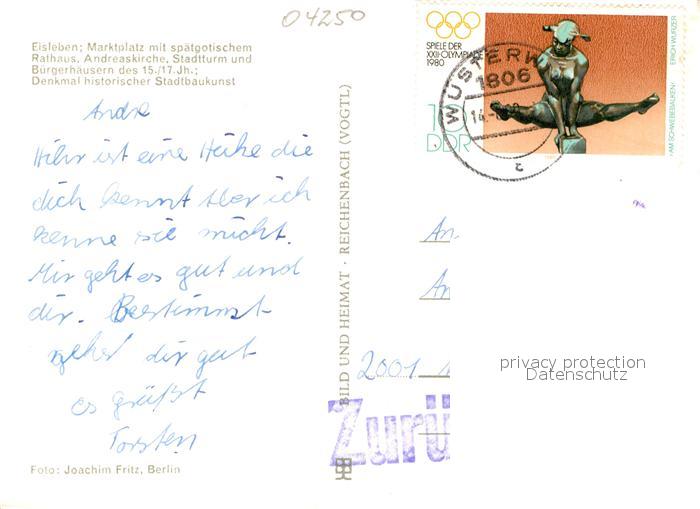 04250
Eisleben; Marktplatz mit spätgotischem
Rathaus, Andreaskirche, Stadtturm und
Bürgerhäusern des 15./17.Jh.;
Denkmal historischer Stadtbaukunst
Andre
Hihr ist eine Heike die
dich kennt aber ich
kenne sie nicht.
Mir geht es gut und
dir. Beestimmt
gehs dir gut
es grüßt
Torsten
Foto: Joachim Fritz, Berlin
BILD UND HEIMAT · REICHENBACH (VOGTL)
SPIELE DER
XXII. OLYMPIADE
1980
10
DDR
ERICH WURZER
AM SCHWEBEBALKEN
WUSTERW
1806
14.
a
An
An
2001
Zurü
privacy protection
Datenschutz